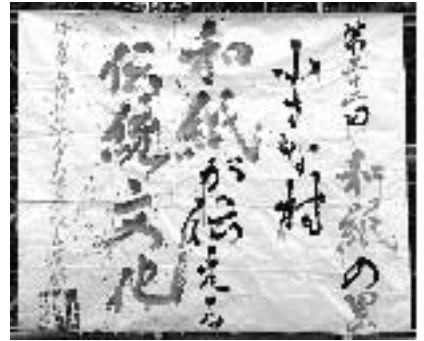 第三十二回 和紙の里
小さな村
和紙が伝える
伝統文化